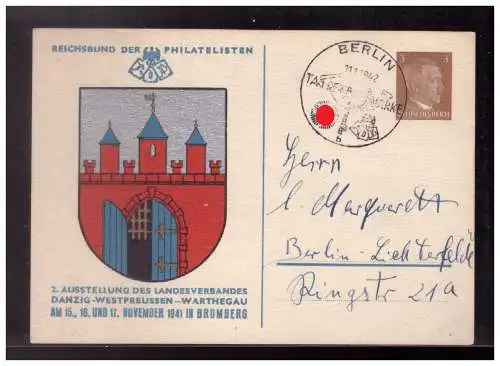 REICHSBUND DER PHILATELISTEN
BERLIN
11.1.1942
TAG DER BRIEFMARKE
b
3 3
DEUTSCHES REICH
Herrn
E. Marquardt
Berlin-Lichterfelde
Ringstr 21a
2. AUSSTELLUNG DES LANDESVERBANDES
DANZIG-WESTPREUSSEN-WARTHEGAU
AM 15., 16. UND 17. NOVEMBER 1941 IN BROMBERG